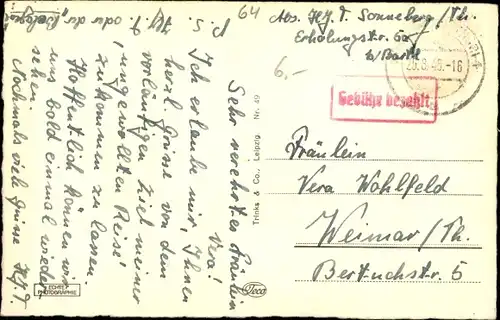 64
Abs. H.J.T. Sonneberg/Th.
Erholungstr. 62
b/Bartl
6,-
20.8.45.-16
Gebühr bezahlt
Fräulein
Vera Wohlfeld
Weimar/Th.
Bertuchstr. 5
Sehr verehrtes Fräulein
Vera!
Ich erlaube mir, Ihnen
herzl. Grüße von dem
vorläufigen Ziel meiner
"ungewollten Reise"
zukommen zu lassen.
Hoffentlich können wir
uns bald einmal wieder
sehen.
Nochmals viele Grüsse H.J.T.
P.S. H.J.T. oder der "Belgier"
Trinks & Co., Leipzig Nr. 49
Trico
ECHTE
PHOTOGRAPHIE